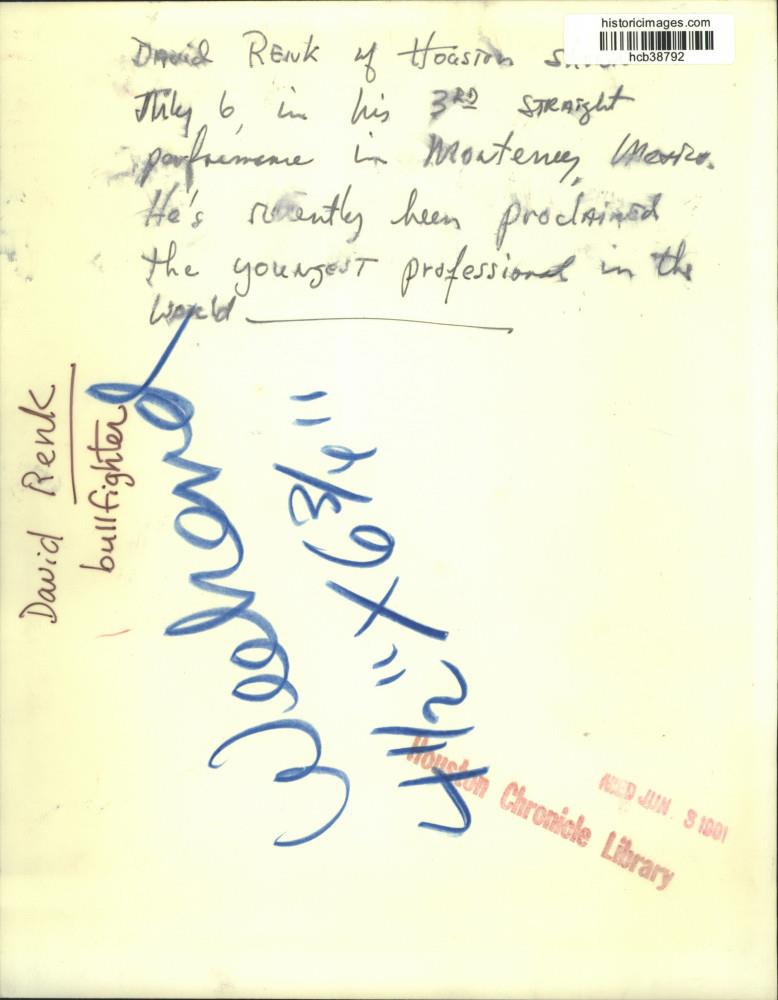 historicimages.com
hcb38792
David Renk of Houston
July 6, in his 3RD STRAIGHT
performance in Monterrey, Mexico.
He's recently been proclaimed
the youngest professional in the
world
David Renk
bullfighter
Weekend
4 1/2" X 6 3/4"
Houston Chronicle Library
JUN 3 1981